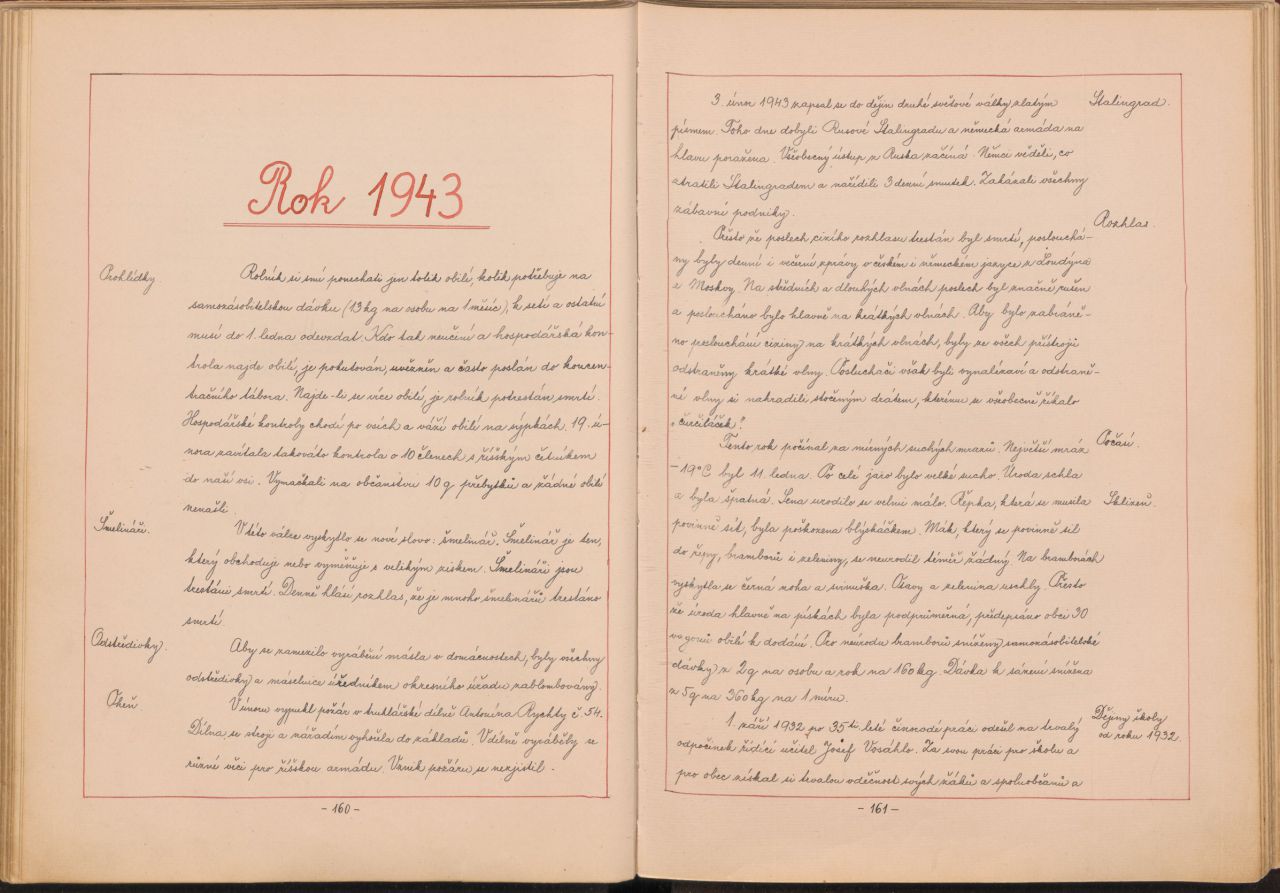 Rok 1943
Prohlídky
Rolník si smí ponechati jen tolik obilí, kolik potřebuje na
samozásobitelskou dávku (13 kg na osobu na 1 měsíc), k setí a ostatní
musí do 1. ledna odevzdat. Kdo tak neučiní a hospodářská kon-
trola najde obilí, je pokutován, uvězněn a často poslán do koncen-
tračního tábora. Najde-li se více obilí, je rolník potrestán smrtí.
Hospodářské kontroly chodí po vsích a váží obilí na sýpkách. 19. ú-
nora zavítala takováto kontrola o 10 členech s říšským četníkem
do naší vsi. Vymačkali na občanstvu 10 q přebytků a žádné obilí
nenašli.
Šmelináři.
V této válce vyskytlo se nové slovo: šmelinář. Šmelinář je ten,
který obchoduje nebo vyměňuje s velikým ziskem. Šmelináři jsou
trestáni smrtí. Denně hlásí rozhlas, že je mnoho šmelinářů trestáno
smrtí
Odstředivky.
Aby se zamezilo vyrábění másla v domácnostech, byly všechny
odstředivky a máselnice úředníkem okresního úřadu zablombovány.
Oheň.
V únoru vypukl požár v truhlářské dílně Antonína Rychty č 54.
Dílna se stroji a nářadím vyhořela do základů. V dílně vyráběly se
různé věci pro říšskou armádu. Vznik požáru se nezjistil.
- 160 -
3. únor 1943 zapsal se do dějin druhé světové války zlatým
Stalingrad.
písmem. Toho dne dobyli Rusové Stalingradu a německá armáda na
hlavu poražena. Všeobecný ústup z Ruska začíná. Němci věděli, co
ztratili Stalingradem a nařídili 3 denní smutek. Zakázali všechny
zábavní podniky.
Rozhlas.
Přesto že poslech cizího rozhlasu trestán byl smrtí, poslouchá-
ny byly denní i večerní zprávy v českém i německém jazyce z Londýna
z Moskvy. Na středních a dlouhých vlnách poslech byl značně rušen
a posloucháno bylo hlavně na krátkých vlnách. Aby bylo zabráně-
no poslouchání ciziny na krátkých vlnách, byly ze všech přístrojů
odstraněny krátké vlny. Posluchači však byli vynalézaví a odstraně-
né vlny si nahradili stočeným drátem, kterému se všeobecně říkalo
„čurčiláček".
Tento rok počínal za mírných suchých mrazů. Největší mráz
Počasí.
-19°C byl 11. ledna. Po celé jaro bylo velké sucho. Úroda schla
a byla špatná. Sena urodilo se velmi málo. Řepka, která se musila
Sklizeň.
povinně sít, byla poškozena blýskáčkem. Mák, který se povinně sil
do řepy, bramborů i zeleniny, se neurodil téměř žádný. Na bramborách
vyskytla se černá noha a svinutka. Otavy a zelenina uschly. Přesto
že úroda hlavně na pískách byla podprůměrná, předepsáno obci 30
vagonů obilí k dodání. Pro neúrodu bramborů sníženy samozásobitelské
dávky z 2 q na osobu a rok na 160 kg. Dávka k sázení snížena
z 5 q na 360 kg na 1 míru.
1. září 1932 po 35ti leté činorodé práci odešel na trvalý
Dějiny školy
od roku 1932.
odpočinek řídící učitel Josef Vosáhlo. Za svou práci pro školu a
pro obec získal si trvalou vděčnost svých žáků a spoluobčanů a
- 161 -